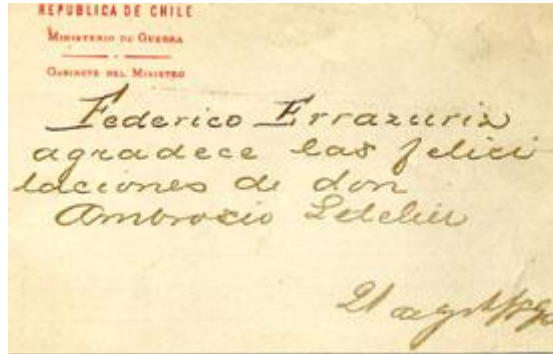 REPUBLICA DE CHILE
MINISTERIO DE GUERRA
GABINETE DEL MINISTRO
Federico Errazuriz
agradece las felici
taciones de don
Ambrosio Letelier
21 de